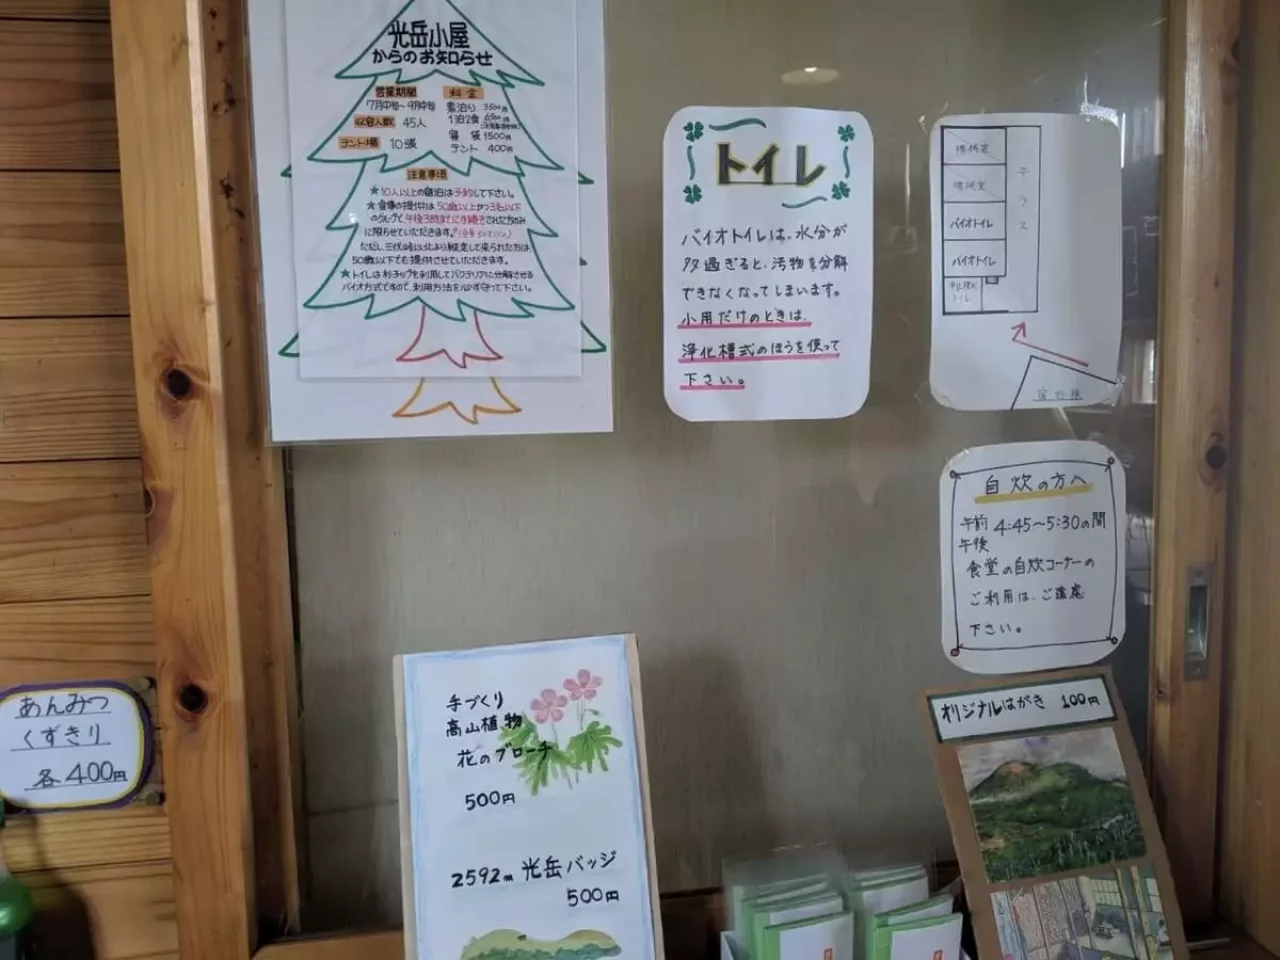 光岳小屋
からのお知らせ
営業期間
7月中旬〜9月中旬
収容人数 45人
テント場 10張
料金
素泊り 3500円
1泊2食
寝袋 1500円
テント 400円
注意事項
★10人以上の宿泊は予約して下さい。
★食事の提供は50歳以上かつ3名以下
のグループで、午後3時までに手続きされた方のみ
に限らせていただきます。
ただし、三伏峠以北より縦走して来られた方は
50歳以下でも提供させていただきます。
★トイレは杉チップを利用してバクテリアに分解させる
バイオ方式ですので、利用方法を必ず守って下さい。
トイレ
バイオトイレは、水分が
多過ぎると、汚物を分解
できなくなってしまいます。
小用だけのときは、
浄化槽式のほうを使って
下さい。
機械室
機械室
バイオトイレ
バイオトイレ
浄化槽式
トイレ
テラス
宿泊棟
自炊の方へ
午前
午後
4:45〜5:30の間
食堂の自炊コーナーの
ご利用は、ご遠慮
下さい。
あんみつ
くずきり
各400円
手づくり
高山植物
花のブローチ
500円
2592m 光岳バッジ
500円
オリジナルはがき 100円